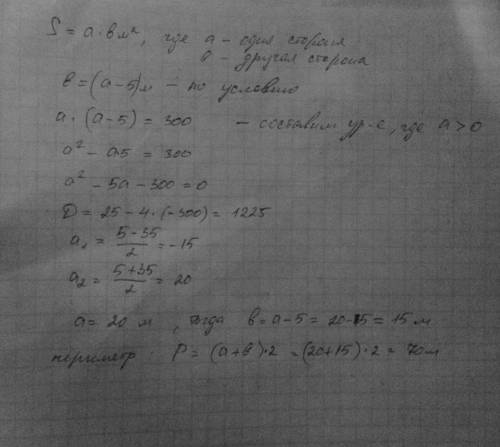 S = a · в м², где a – одна сторона
в – другая сторона
в = (a-5) м – по условию
a · (a-5) = 300 – составим ур-е, где a > 0
a² - a5 = 300
a² - 5a - 300 = 0
D = 25 - 4 · (-300) = 1225
a₁ = (5-35)/2 = -15
a₂ = (5+35)/2 = 20
a = 20 м, тогда в = a-5 = 20-5 = 15 м
периметр P = (a+в)·2 = (20+15)·2 = 70м